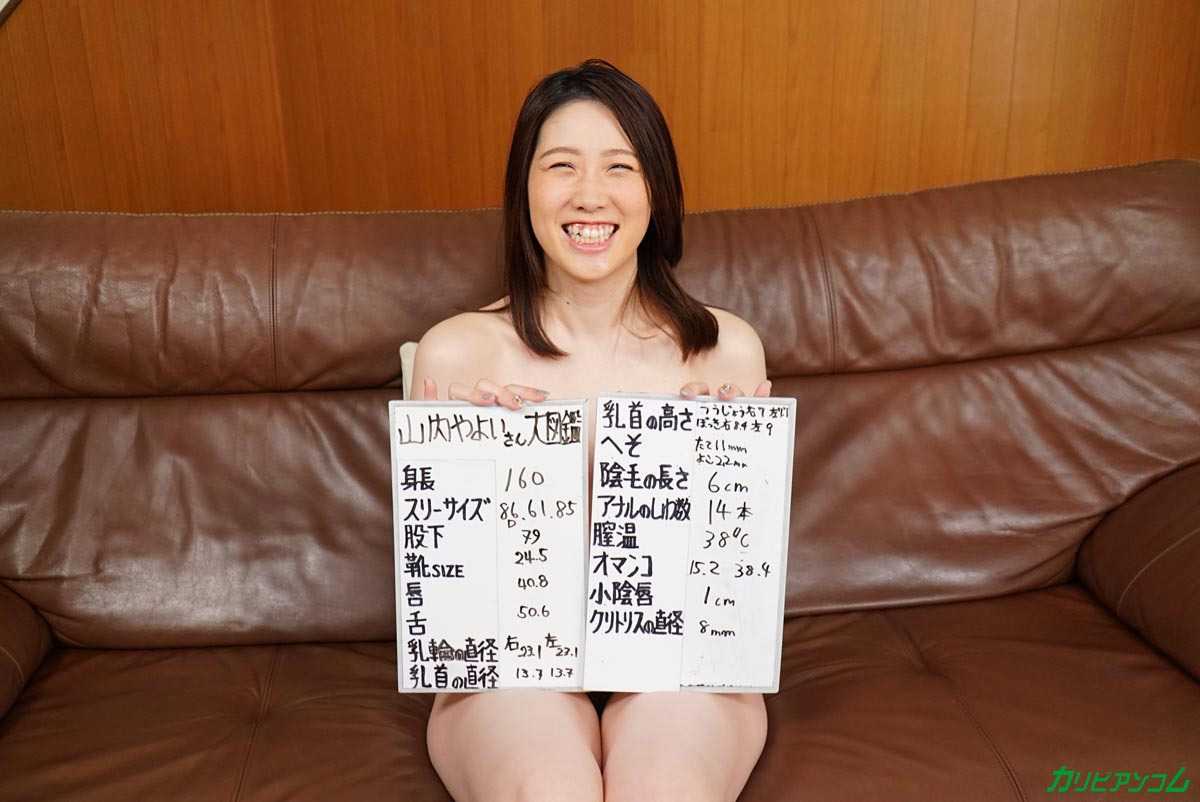 山内やよいさん大図鑑
身長 160
スリーサイズ 86.61.85
D
股下 79
靴SIZE 24.5
唇 40.8
舌 50.6
乳輪の直径 右23.1 左23.1
乳首の直径 13.7 13.7
乳首の高さ つうじょう右7
ぼっき右8.4 左9
へそ たて11mm
よこ22mm
陰毛の長さ 6cm
アナルのしわ数 14本
膣温 38℃
オマンコ 15.2 38.4
小陰唇 1cm
クリトリスの直径 8mm
カリビアンコム